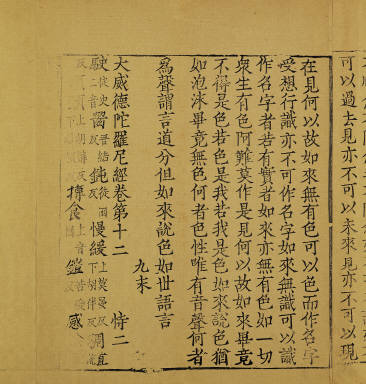 可以過去見亦不可以未來見亦不可以現
在見何以故如來無有色可以色而作名字
受想行識亦不可作名字如來無識可以識
作名字者若有實者如來亦無有色如一切
衆生有色阿難莫作是見何以故如來畢竟
不得是色若色是我若我是色如來說色猶
如泡沫畢竟無色何者色性唯有音聲何者
為聲謂言道分但如來說色如世語言
九末
大威德陀羅尼經卷第十二 恃二
鈍 慢緩
摶食 鑑